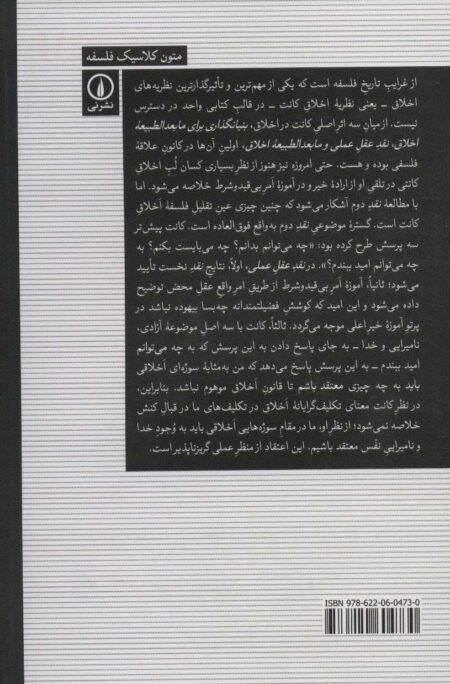 متون کلاسیک فلسفه
نشرنی
از غرایبِ تاریخِ فلسفه است که یکی از مهم‌ترین و تأثیرگذارترین نظریه‌های
اخلاق ــ یعنی نظریهٔ اخلاقیِ کانت ــ در قالبِ کتابی واحد در دسترس
نیست. از میانِ سه اثرِ اصلیِ کانت در اخلاق، بنیانگذاری برای مابعدالطبیعهٔ
اخلاق، نقدِ عقلِ عملی و مابعدالطبیعهٔ اخلاق، اولینِ آن‌ها در کانونِ علاقهٔ
فلسفی بوده و هست. حتی امروزه نیز هنوز از نظرِ بسیاری کسان لُبِ اخلاقِ
کانتی در تلقیِ او از ارادهٔ خیر و در آموزهٔ امرِ بی‌قیدوشرط خلاصه می‌شود. اما
با مطالعهٔ نقدِ دوم آشکار می‌شود که چنین چیزی عینِ تقلیلِ فلسفهٔ اخلاقِ
کانت است. گسترهٔ موضوعیِ نقدِ دوم به‌واقع فوق‌العاده است. کانت پیش‌تر
سه پرسش طرح کرده بود: «چه می‌توانم بدانم؟ چه می‌بایست بکنم؟ به
چه می‌توانم امید ببندم؟». در نقدِ عقلِ عملی، اولاً، نتایجِ نقدِ نخست تأیید
می‌شود؛ ثانیاً، آموزهٔ امرِ بی‌قیدوشرط از طریقِ امرِ واقعِ عقلِ محض توضیح
داده می‌شود و این امید که کوششِ فضیلتمندانه چه‌بسا بیهوده نباشد در
پرتوِ آموزهٔ خیرِ اعلی موجه می‌گردد. ثالثاً، کانت با سه اصل موضوعهٔ آزادی،
نامیرایی و خدا ــ به جای پاسخ دادن به این پرسش که به چه می‌توانم
امید ببندم ــ به این پرسش پاسخ می‌دهد که من به‌مثابهٔ سوژه‌ای اخلاقی
باید به چه چیزی معتقد باشم تا قانونِ اخلاق موهوم نباشد. بنابراین،
در نظرِ کانت معنای تکلیف‌گرایانهٔ اخلاق در تکلیف‌های ما در قبالِ کنش
خلاصه نمی‌شود؛ از نظرِ او، ما در مقامِ سوژه‌هایی اخلاقی باید به وجودِ خدا
و نامیراییِ نَفْس معتقد باشیم. این اعتقاد از منظرِ عملی گریزناپذیر است.
ISBN 978-622-06-0473-0